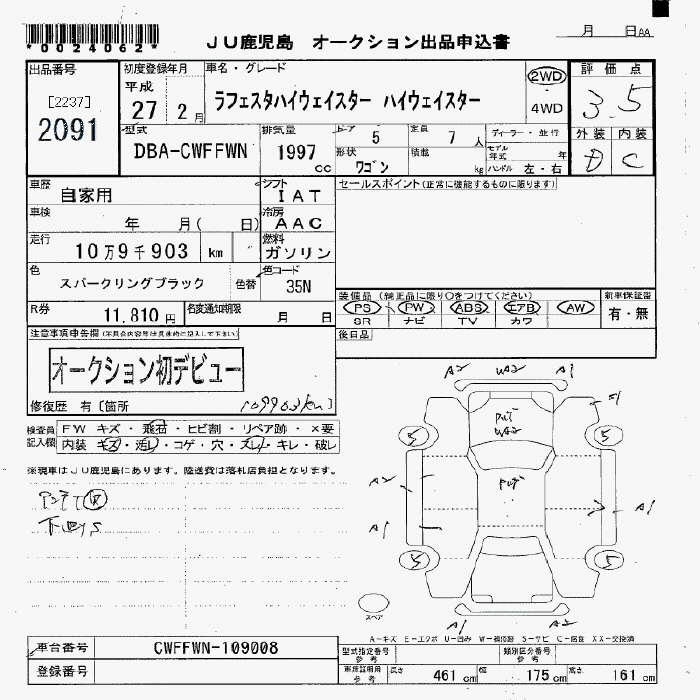 *0024062*
JU鹿児島 オークション出品申込書
月 日AA
出品番号
[2237]
2091
初度登録年月
平成
27 2月
車名・グレード
ラフェスタハイウェイスター ハイウェイスター
2WD
4WD
評価点
3.5
外装 内装
D C
型式
DBA-CWFFWN
排気量
1997 cc
ドア 5
定員 7人
形状
ワゴン
積載 kg
ディーラー・並行
モデル年式 年
ハンドル 左・右
車歴
自家用
シフト
IAT
車検
年 月( 日)
冷房
AAC
走行
10万9千903 km
燃料
ガソリン
色
スパークリングブラック
色替
色コード
35N
R券
11,810円
名変通知期限
月 日
セールスポイント(正常に機能するものに限ります)
装備品(純正品に限り○をつけてください)
PS PW ABS エアB AW
SR ナビ TV カワ
新車保証書
有・無
後日品
注意事項申告欄(不具合内容等は具体的に記入して下さい)
オークション初デビュー
修復歴 有〔箇所
109903km)
検査員記入欄
FW キズ・飛石・ヒビ割・リペア跡・×要
内装 キズ・汚レ・コゲ・穴・スレ・キレ・破レ
※現車はJU鹿児島にあります。陸送費は落札店負担となります。
下回りS
A2 WA2 A1
A1
WA2
5 5
A2
A1
A1
5 5
A1 A2
スペア
A-キズ E-エクボ U-凹み W-補修跡 S-サビ C-腐食 XX-交換済
車台番号
CWFFWN-109008
登録番号
型式指定番号
参考
類別区分番号
参考
車検証明用
参考
長さ 461cm
幅 175cm
高さ 161cm